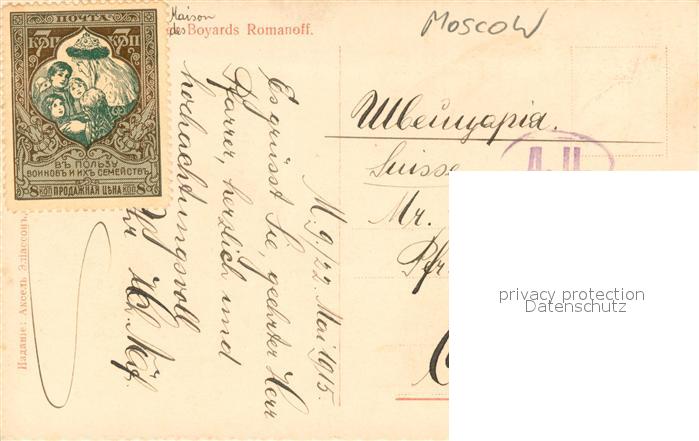 ПОЧТА
7 КОП 7 КОП
ВЪ ПОЛЬЗУ
ВОИНОВЪ И ИХЪ СЕМЕЙСТВЪ
8 КОП ПРОДАЖНАЯ ЦѢНА КОП 8
Maison
des Boyards Romanoff.
MOSCOW
Швейцарія.
Suisse
Mr.
Pfr
M. 9./22. Mai 1915.
Es grüsst Sie, geehrter Herr
Pfarrer, herzlich und
hochachtungsvoll
Ihr
Изданіе: Аксель Эліассонъ,
privacy protection
Datenschutz